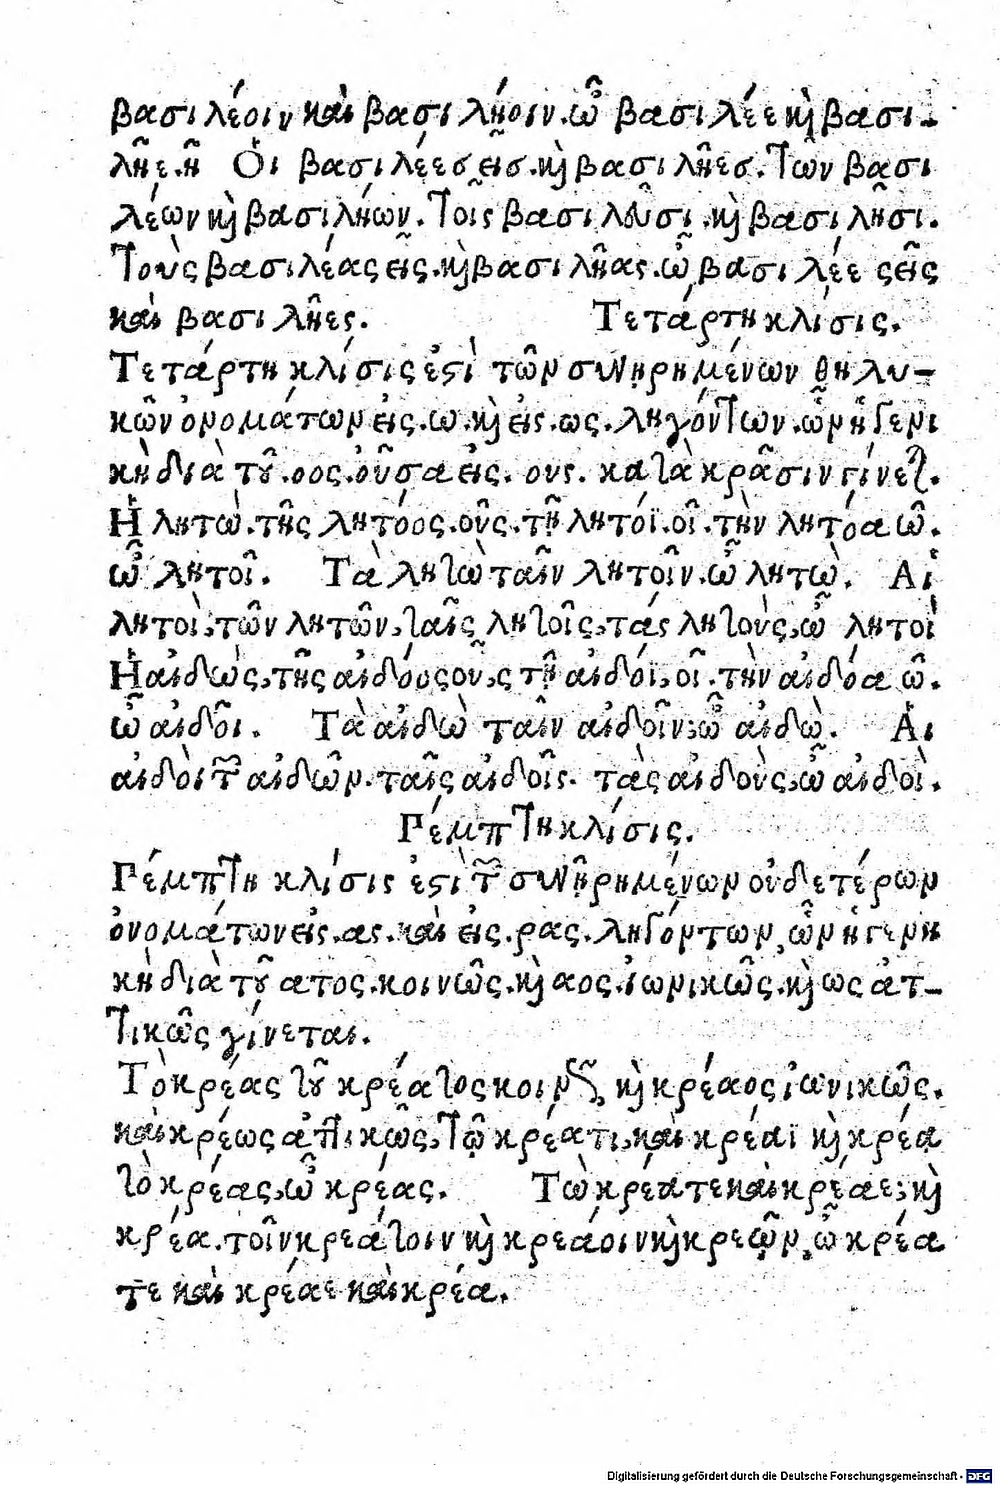 βασιλέοιν καὶ βασιλήοιν.ὦ βασιλέε καὶ βασι-
λῆε.ῆ Οἱ βασιλέεσ εῖσ.καὶ βασιλῆεσ.Τῶν βασι
λέων καὶ βασιλήων.Τοῖς βασιλεῦσι.καὶ βασιλῆσι.
Τοὺς βασιλέας εῖς.καὶ βασιλῆας.ὦ βασιλέες εῖς
καὶ βασιλῆες. Τετάρτη κλίσις.
Τετάρτη κλίσις ἐστὶ τῶν συνῃρημένων θηλυ-
κῶν ὀνομάτων εἰς.ω.καὶ εἰς.ως.ληγόντων.ὧν ἡ γενι
κὴ διὰ τοῦ.οος.οὖσα εἰς.ους.κατὰ κρᾶσιν γίνεται.
Ἡ λητὼ.τῆς λητόος.οῦς.τῇ λητόϊ.οῖ.τὴν λητόα ῶ.
ὦ λητοῖ. Τὰ λητὼ ταῖν λητοῖν.ὦ λητὼ. Αἱ
λητοὶ,τῶν λητῶν,ταῖς λητοῖς,τάς λητοὺς,ὦ λητοὶ
Ἡ αἰδὼς,τῆς αἰδόος οῦ,ς τῇ αἰδόϊ,οῖ.τὴν αἰδόα ῶ.
ὦ αἰδοῖ. Τὰ αἰδὼ ταῖν αἰδοῖν,ὦ αἰδὼ. Αἱ
αἰδοὶ τῶν αἰδῶν.ταῖς αἰδοῖς. τὰς αἰδοὺς,ὦ αἰδοὶ.
Πέμπτη κλίσις.
Πέμπτη κλίσις ἐστὶ τῶν συνῃρημένων οὐδετέρων
ὀνομάτων εἰς.ας.καὶ εἰς.ρας.ληγόντων,ὧν ἡ γενη
κὴ διὰ τοῦ ατος.κοινῶς.καὶ αος.ἰωνικῶς.καὶ ως ἀτ-
τικῶς γίνεται.
Τὸ κρέας τοῦ κρέατος κοινῶς, καὶ κρέαος ἰωνικῶς.
καὶ κρέως ἀττικῶς,Τῷ κρέατι,καὶ κρέαϊ καὶ κρέᾳ
τὸ κρέας,ὦ κρέας. Τὼ κρέατε καὶ κρέαε,καὶ
κρέα.τοῖν κρεάτοιν καὶ κρεάοιν καὶ κρεῷν,ὦ κρέα
τε καὶ κρέαε καὶ κρέα.
Digitalisierung gefördert durch die Deutsche Forschungsgemeinschaft - DFG